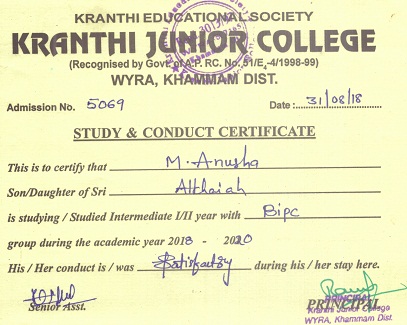 KRANTHI EDUCATIONAL SOCIETY
KRANTHI JUNIOR COLLEGE
(Recognised by Govt. of A.P. RC. No. 51/E -4/1998-99)
WYRA, KHAMMAM DIST.
Admission No. 5069 Date : 31/08/18
STUDY & CONDUCT CERTIFICATE
This is to certify that M. Anusha
Son/Daughter of Sri
is studying / Studied Intermediate I/II year with Bipc
group during the academic year 2018 - 2020
His / Her conduct is / was during his / her stay here.
Senior Asst. PRINCIPAL
PRINCIPAL
Kranthi Junior College
WYRA, Khammam Dist